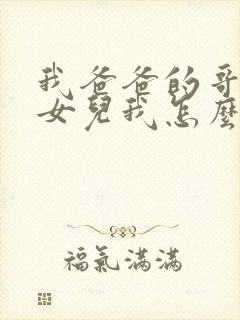 我爸爸的哥
女兒我怎麼
福氣滿滿